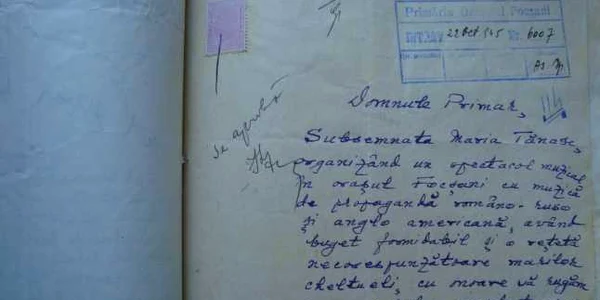 Primăria Orașului Focșani
INTRAT 22 Oct 945 Nr. 6007
se aprobă
Domnule Primar,
Subsemnata Maria Tănase,
organizând un spectacol muzical
în orașul Focșani cu muzică
de propagandă româno-ruso
și anglo americană, având
bujet formidabil și o rețetă
necorespunzătoare marilor
cheltueli, cu onoare vă rugăm